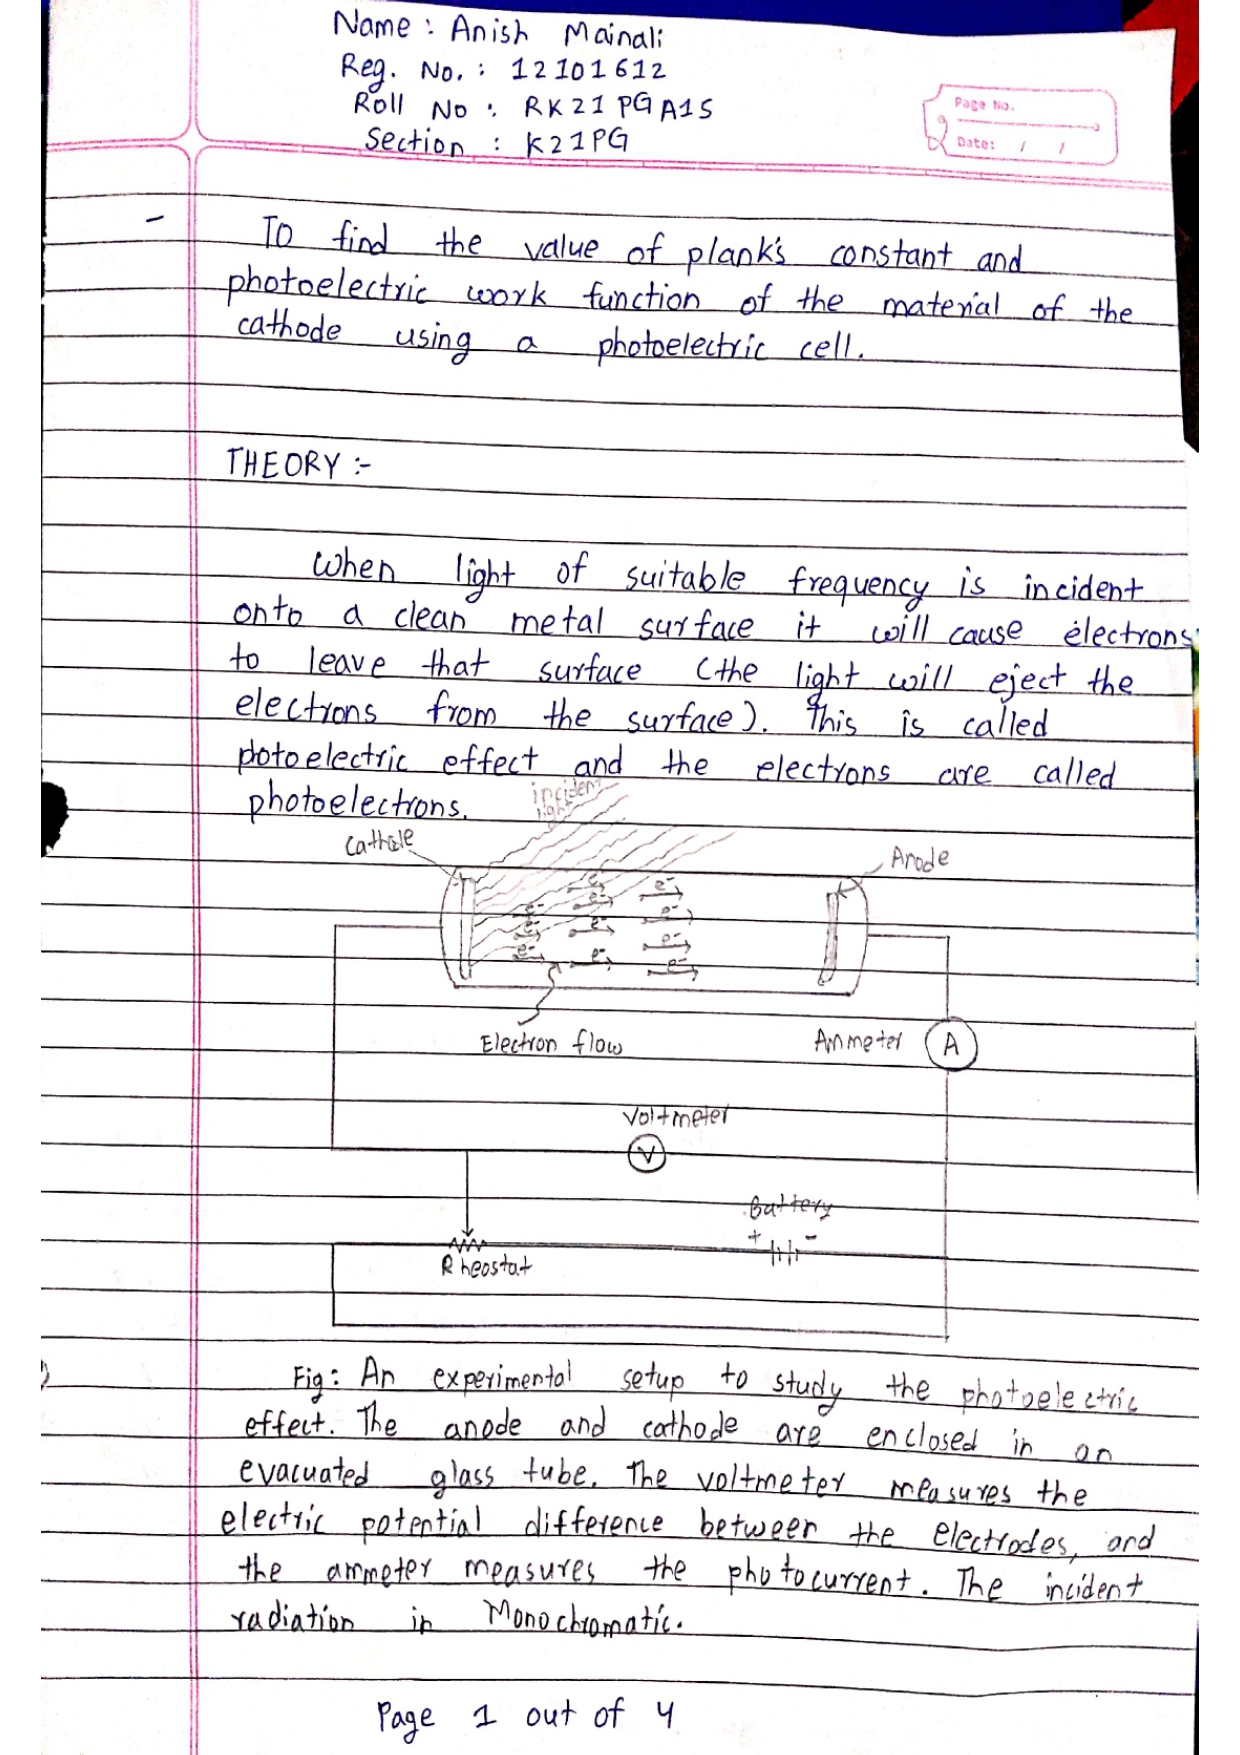 Name : Anish Mainali
Reg. No. : 12101612
Roll No : RK21PGA15
Section : K21PG
Page No.
Date: / /
- To find the value of plank's constant and
photoelectric work function of the material of the
cathode using a photoelectric cell.
THEORY :-
When light of suitable frequency is incident
onto a clean metal surface it will cause electrons
to leave that surface (the light will eject the
electrons from the surface). This is called
potoelectric effect and the electrons are called
photoelectrons.
incident
light
Cathode
Anode
e- e- e-
e- e- e-
e- e- e-
e- e- e-
Electron flow
Ammeter A
Voltmeter
V
Battery
+ -
Rheostat
Fig: An experimental setup to study the photoelectric
effect. The anode and cathode are enclosed in an
evacuated glass tube. The voltmeter measures the
electric potential difference between the electrodes, and
the ammeter measures the photocurrent. The incident
radiation in Monochromatic.
Page 1 out of 4